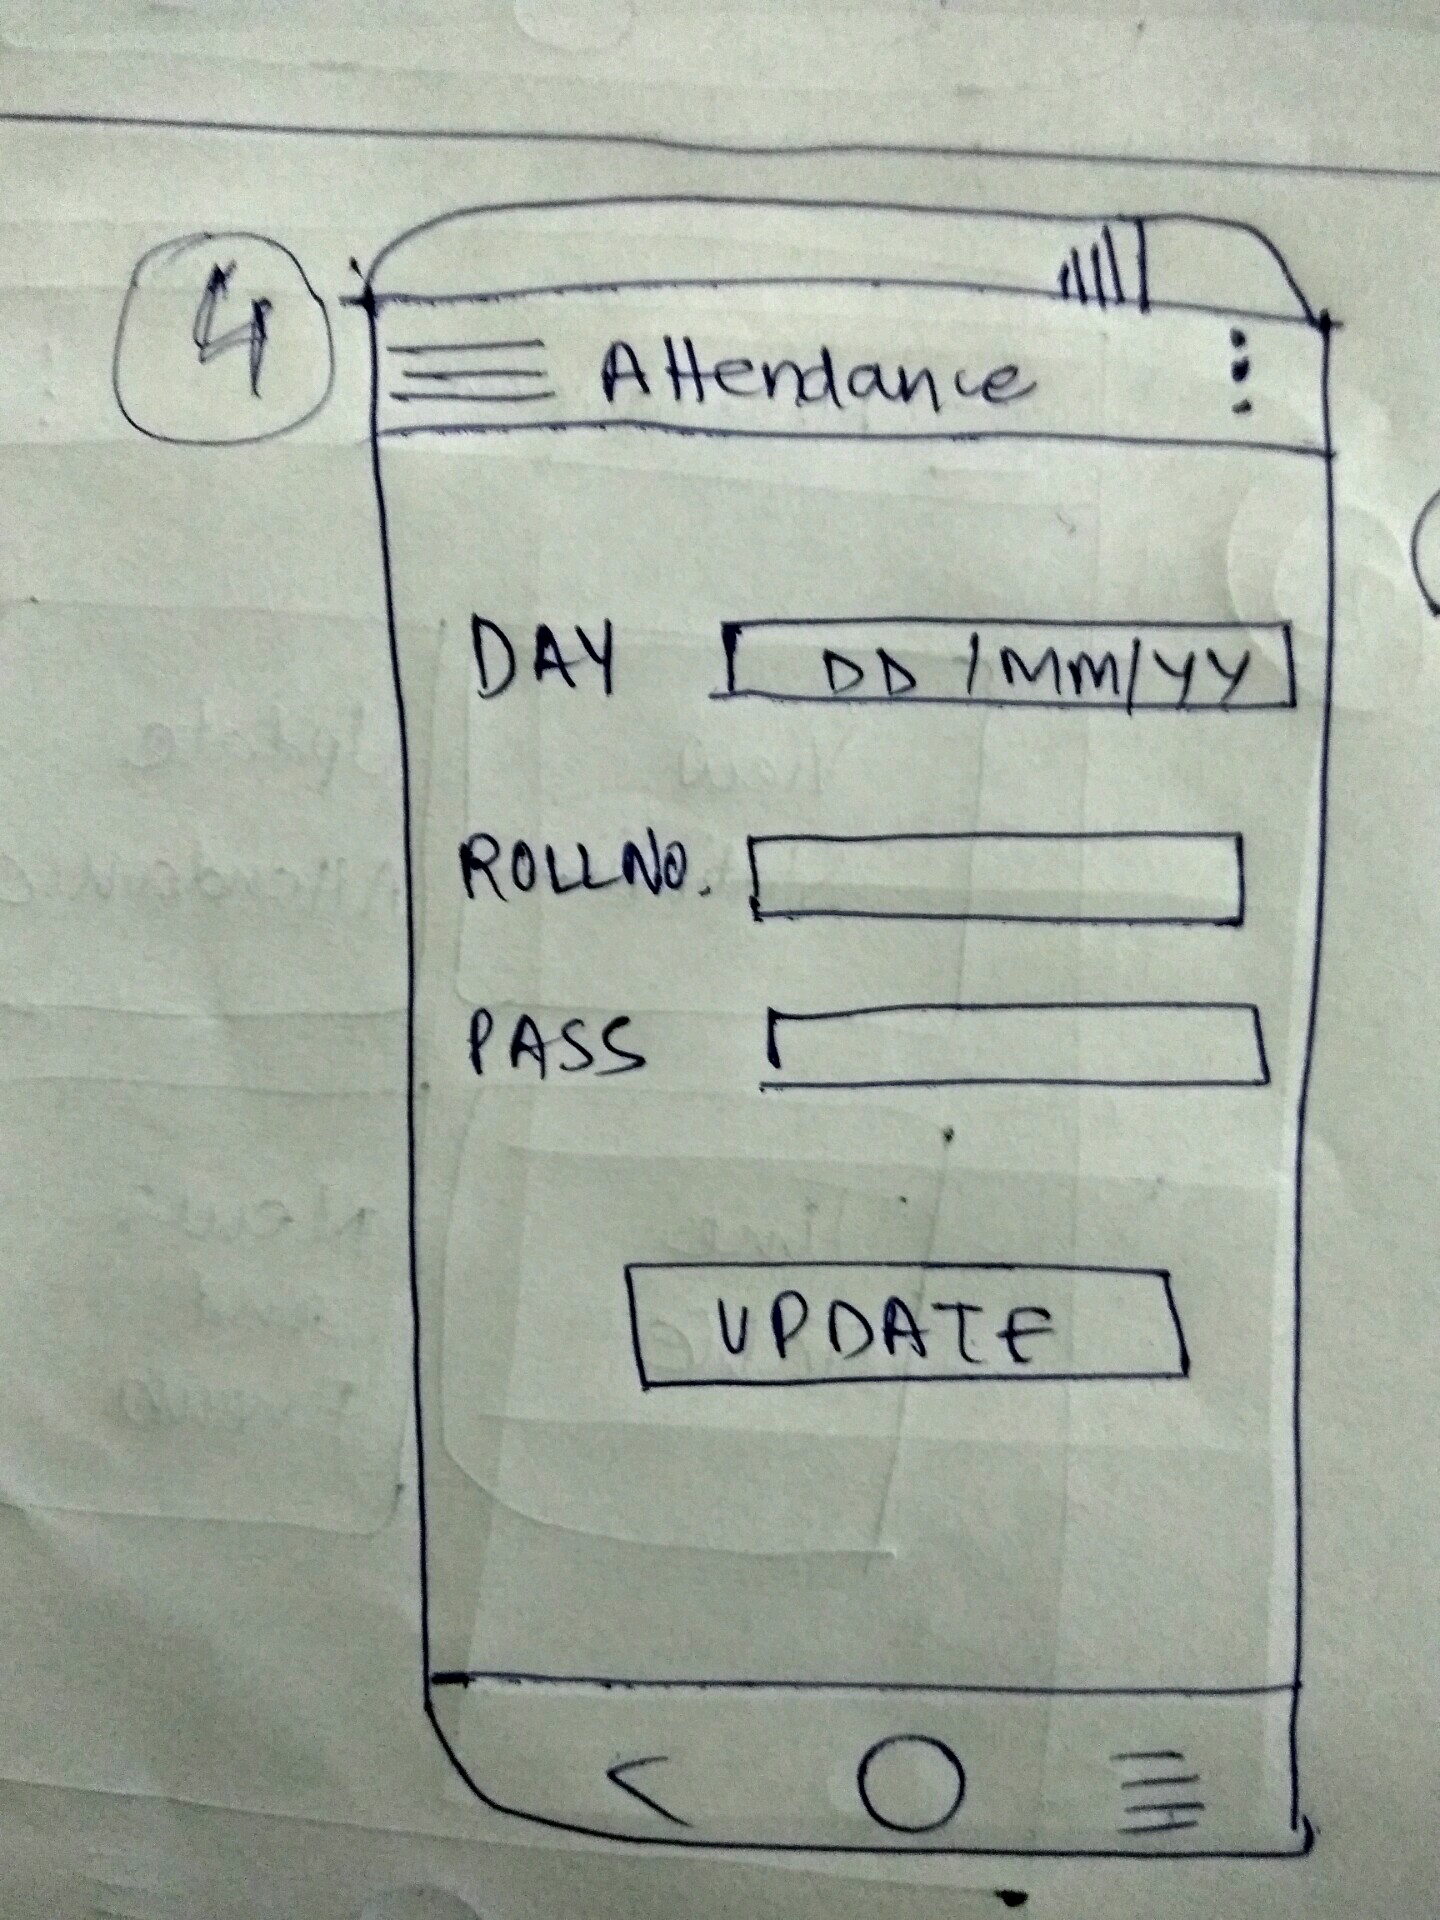 4
Attendance
DAY DD/MM/YY
ROLLNO.
PASS
UPDATE